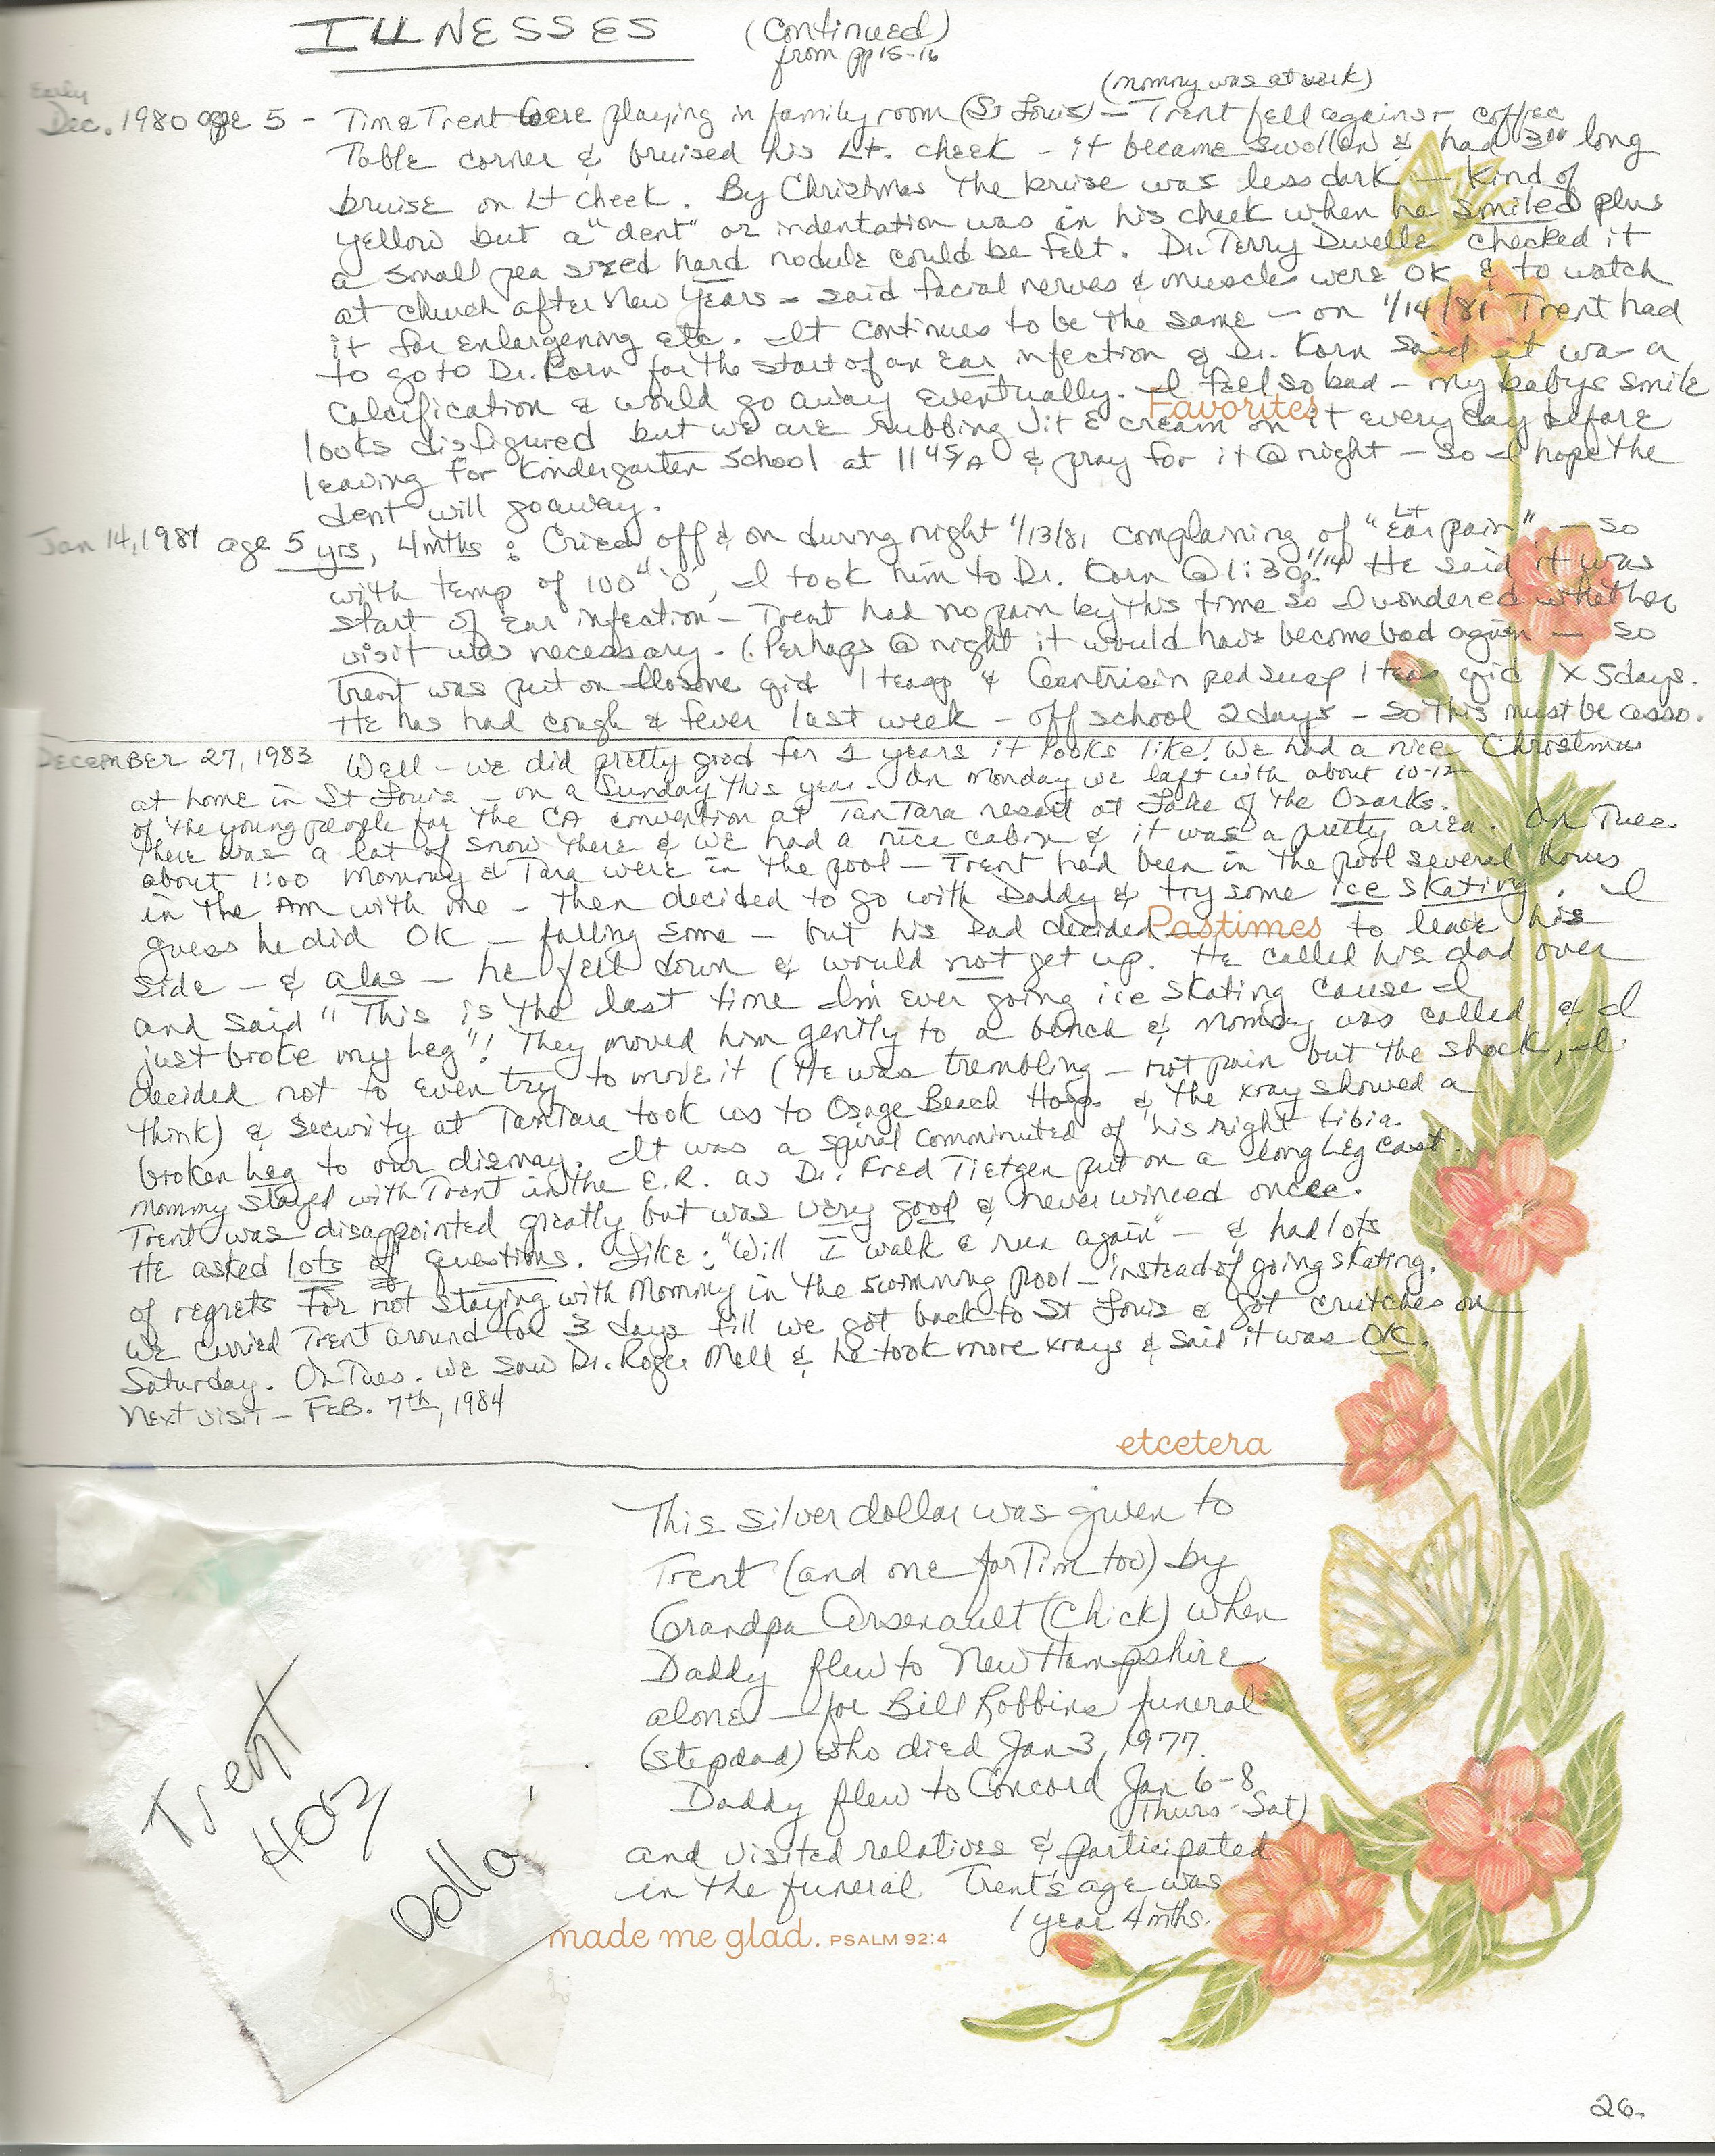 ILLNESSES (Continued)
from pp 15-16
(mommy was at work)
Early
Dec. 1980 age 5 - Tim & Trent were playing in family room (St Louis) - Trent fell against coffee
Table corner & bruised his Lt. cheek - it became swollen & had 3" long
bruise on Lt cheek. By Christmas the bruise was less dark - kind of
yellow but a "dent" or indentation was in his cheek when he smiled plus
a small pea sized hard nodule could be felt. Dr. Terry Dwelle checked it
at church after New Years - said facial nerves & muscles were OK & to watch
it for enlargening etc. It continues to be the same - on 1/14/81 Trent had
to go to Dr. Korn for the start of an ear infection & Dr. Korn said it was a
calcification & would go away eventually. I feel so bad - my babys smile
Favorites
looks disfigured but we are rubbing Vit E cream on it every day before
leaving for Kindergarten School at 1145/A & pray for it @ night - so I hope the
dent will go away.
Jan 14, 1981 age 5 yrs, 4 mths: Cried off & on during night 1/13/81 complaining of "Lt Ear pain" - so
with temp of 100⁴ "O", I took him to Dr. Korn @ 1:30p 1/14 He said it was
start of ear infection - Trent had no pain by this time so I wondered whether
visit was necessary. (Perhaps @ night it would have become bad again - so
Trent was put on Ilosone qid 1 teasp & Gantrisin ped susp 1 teas qid x 5 days.
He has had cough & fever last week - off school 2 days - so this must be asso.
DECEMBER 27, 1983 Well - we did pretty good for 2 years it looks like! We had a nice Christmas
at home in St Louis - on a Sunday this year. On Monday we left with about 10-12
of the young people for the CA convention at TanTara resort at Lake of the Ozarks.
There was a lot of snow there & we had a nice cabin & it was a pretty area. On Tues.
about 1:00 Mommy & Tara were in the pool - Trent had been in the pool several hours
in the AM with me - then decided to go with Daddy & try some ice skating. I
guess he did OK - falling some - but his Dad decided to leave his
Pastimes
side - & alas - he fell down & would not get up. He called his dad over
and said "This is the last time I'm ever going ice skating cause I
just broke my leg"! They moved him gently to a bench & Mommy was called & I
decided not to even try to move it (He was trembling - not pain but the shock, I
think) & Security at TanTara took us to Osage Beach Hosp. & the xray showed a
broken leg to our dismay. It was a spiral comminuted of his right tibia.
Mommy stayed with Trent in the E.R. as Dr. Fred Tietgen put on a long leg cast.
Trent was disappointed greatly but was very good & never winced once.
He asked lots of questions. Like: "Will I walk & run again" - & had lots
of regrets for not staying with Mommy in the swimming pool - instead of going skating.
We carried Trent around for 3 days till we got back to St Louis & got crutches on
Saturday. On Tues. we saw Dr. Roger Mell & he took more xrays & said it was OK.
Next visit - FEB. 7th, 1984
etcetera
This silver dollar was given to
Trent (and one for Tim too) by
Grandpa Arsenault (Chick) when
Daddy flew to New Hampshire
alone - for Bill Robbins funeral
(stepdad) who died Jan 3, 1977.
Daddy flew to Concord Jan 6-8
(Thurs-Sat)
and visited relatives & participated
in the funeral. Trent's age was
1 year 4 mths.
Trent
Hoy
Dolla
made me glad. PSALM 92:4
26.